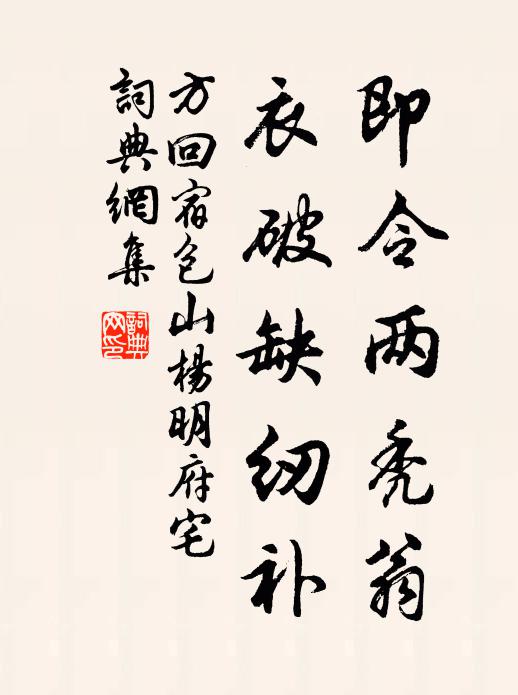 即令两秃翁
衣破缺纫补
方回宿包山楊明府宅
詞典網集
詞典網印